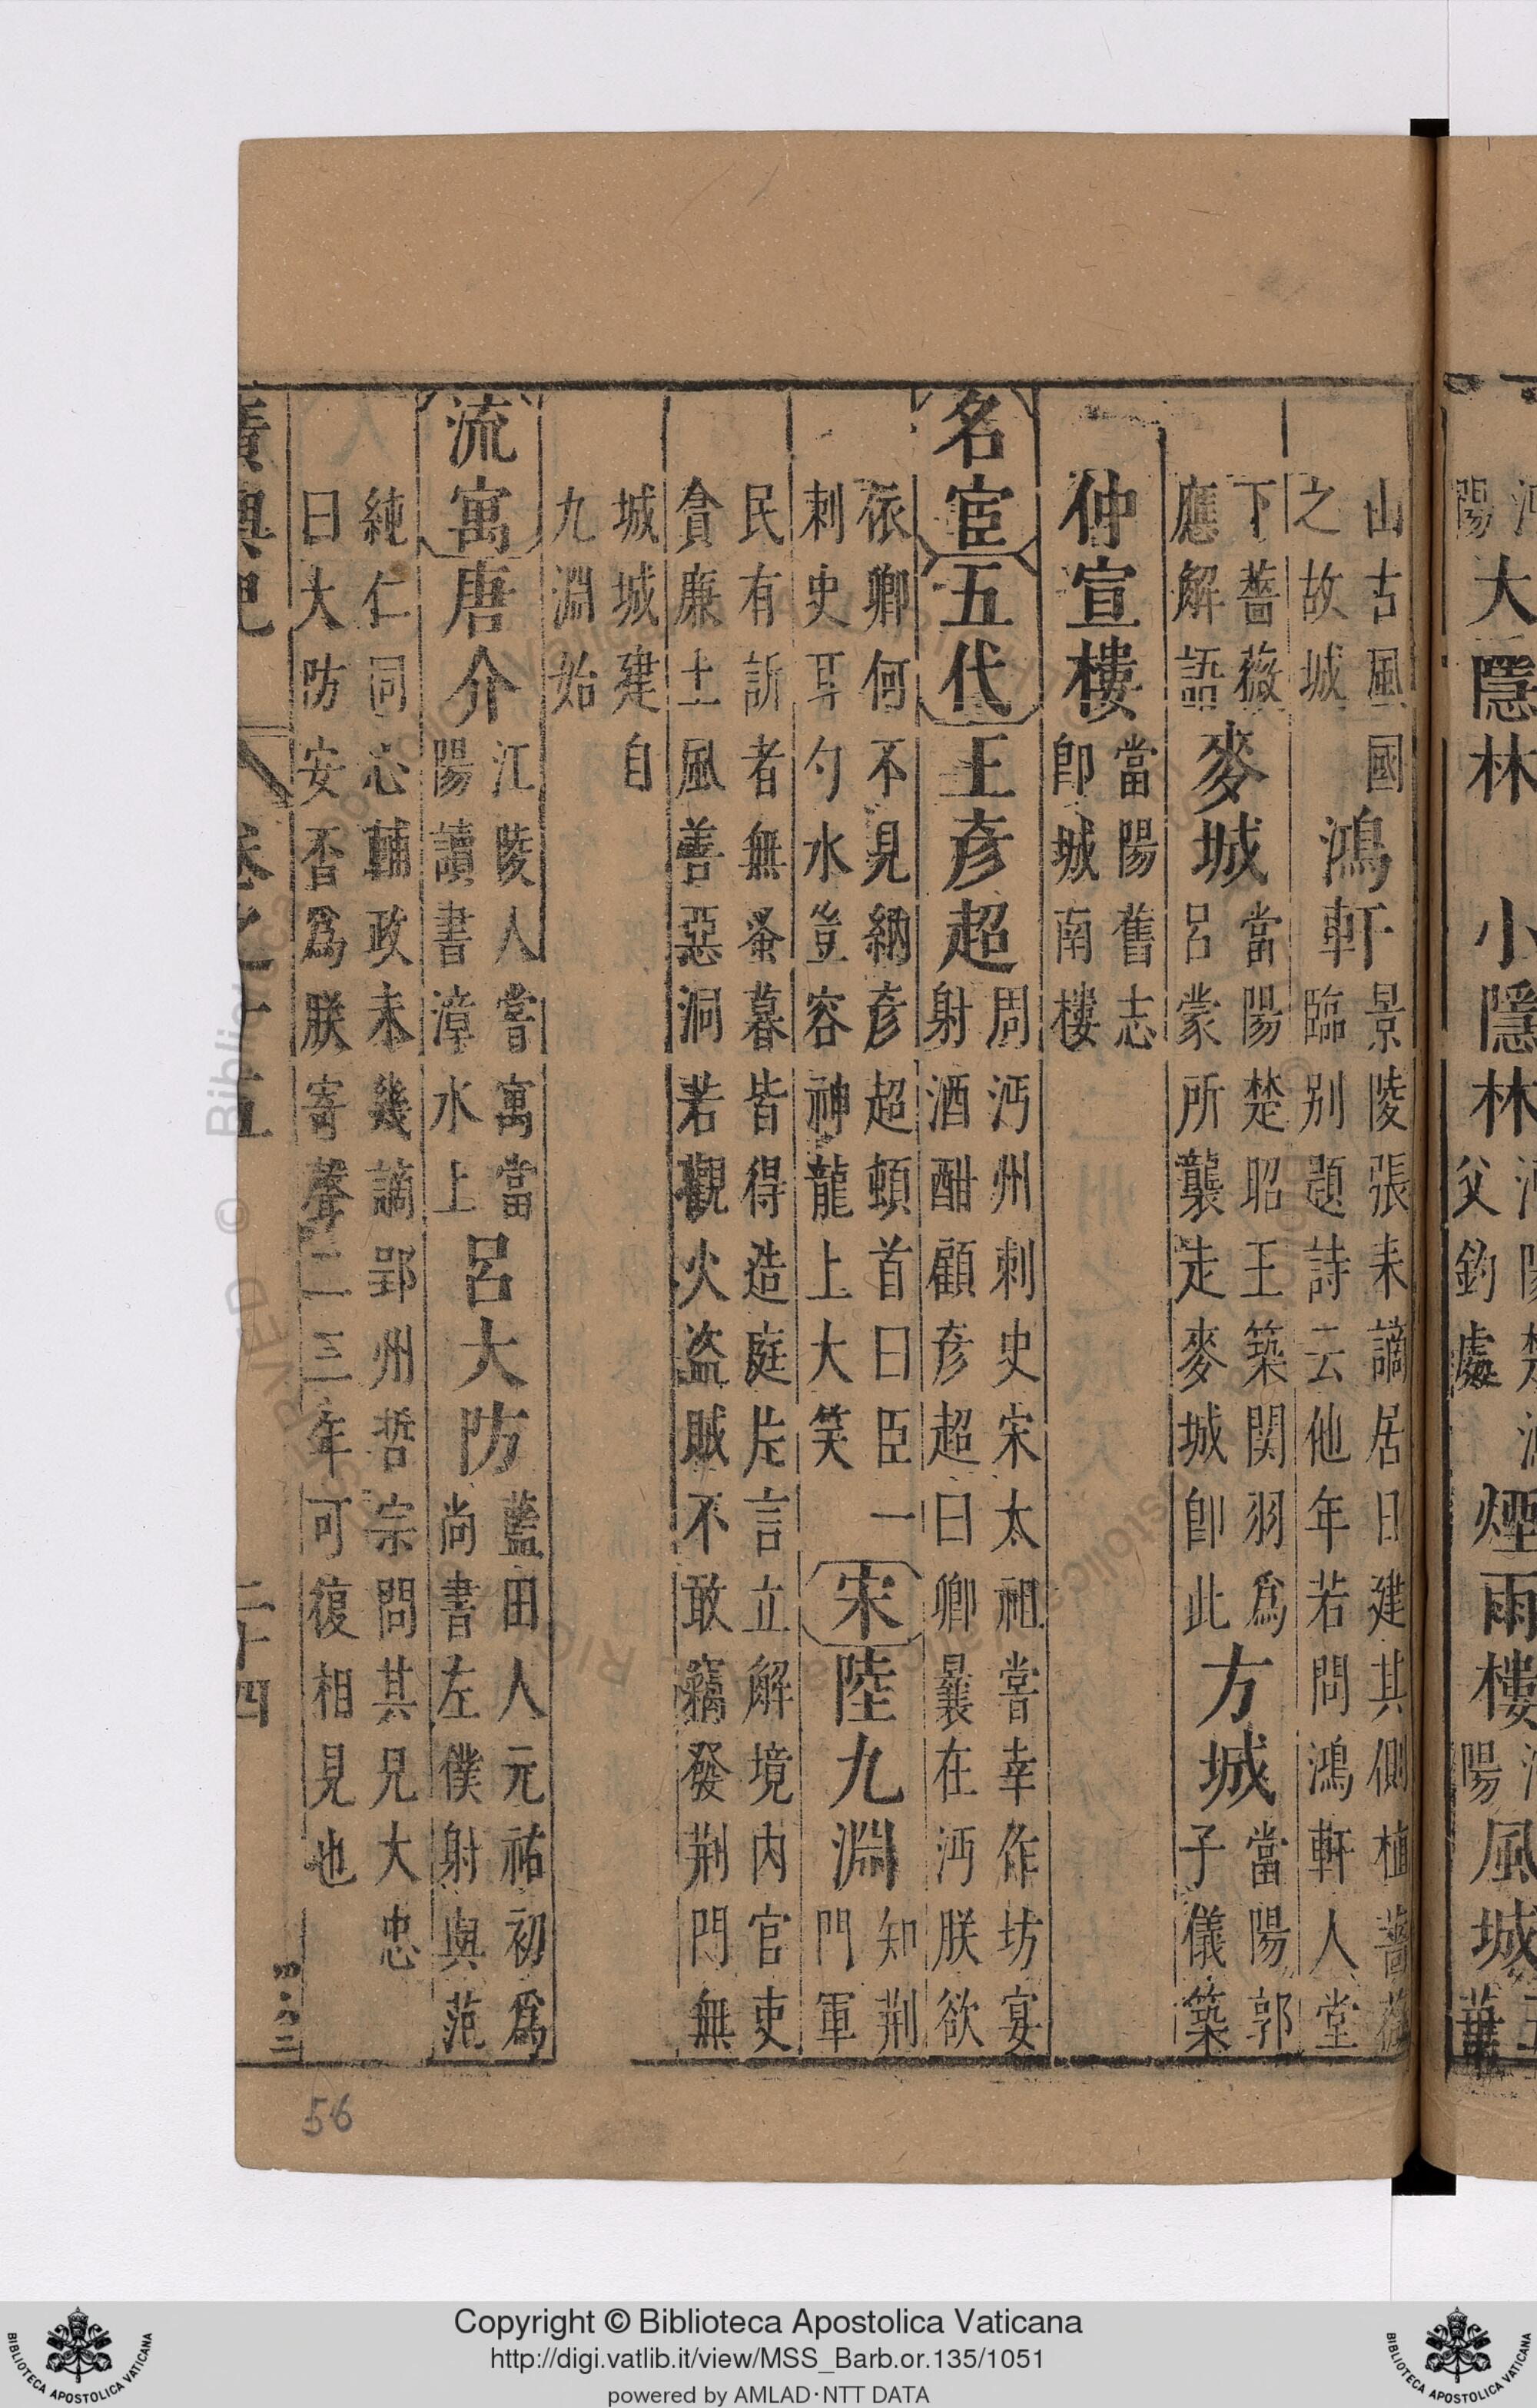 陽大隱林 小隱林父釣處 煙雨樓陽風城華
山古風國之故城鴻軒景陵張耒謫居日建其側植薔薇臨别題詩云他年若問鴻軒人堂
下薔薇應解語麥城當陽楚昭王築関羽爲呂蒙所襲走麥城卽此方城當陽郭子儀築
仲宣樓當陽舊志卽城南樓
名宦五代王彥超周沔州刺史宋太祖嘗幸作坊宴射酒酣顧彥超曰卿曩在沔朕欲
依卿何不見納彥超頓首曰臣一刺史耳勺水豈容神龍上大笑宋陸九淵知荆門軍
民有訴者無蚤暮皆得造庭片言立解境内官吏貪廉土風善惡洞若觀火盗賊不敢竊發荆門無
城城建自九淵始
流寓唐介江陵人嘗寓當陽讀書漳水上呂大防藍田人元祐初爲尚書左僕射與范
純仁同心輔政未幾謫郢州哲宗問其兄大忠曰大防安否爲朕寄聲二三年可復相見也
廣輿記 卷之十五 二十四
56
Copyright © Biblioteca Apostolica Vaticana
http://digi.vatlib.it/view/MSS_Barb.or.135/1051
powered by AMLAD·NTT DATA
BIBLIOTECA APOSTOLICA VATICANA
BIBLIOTECA APOSTOLICA VATICANA